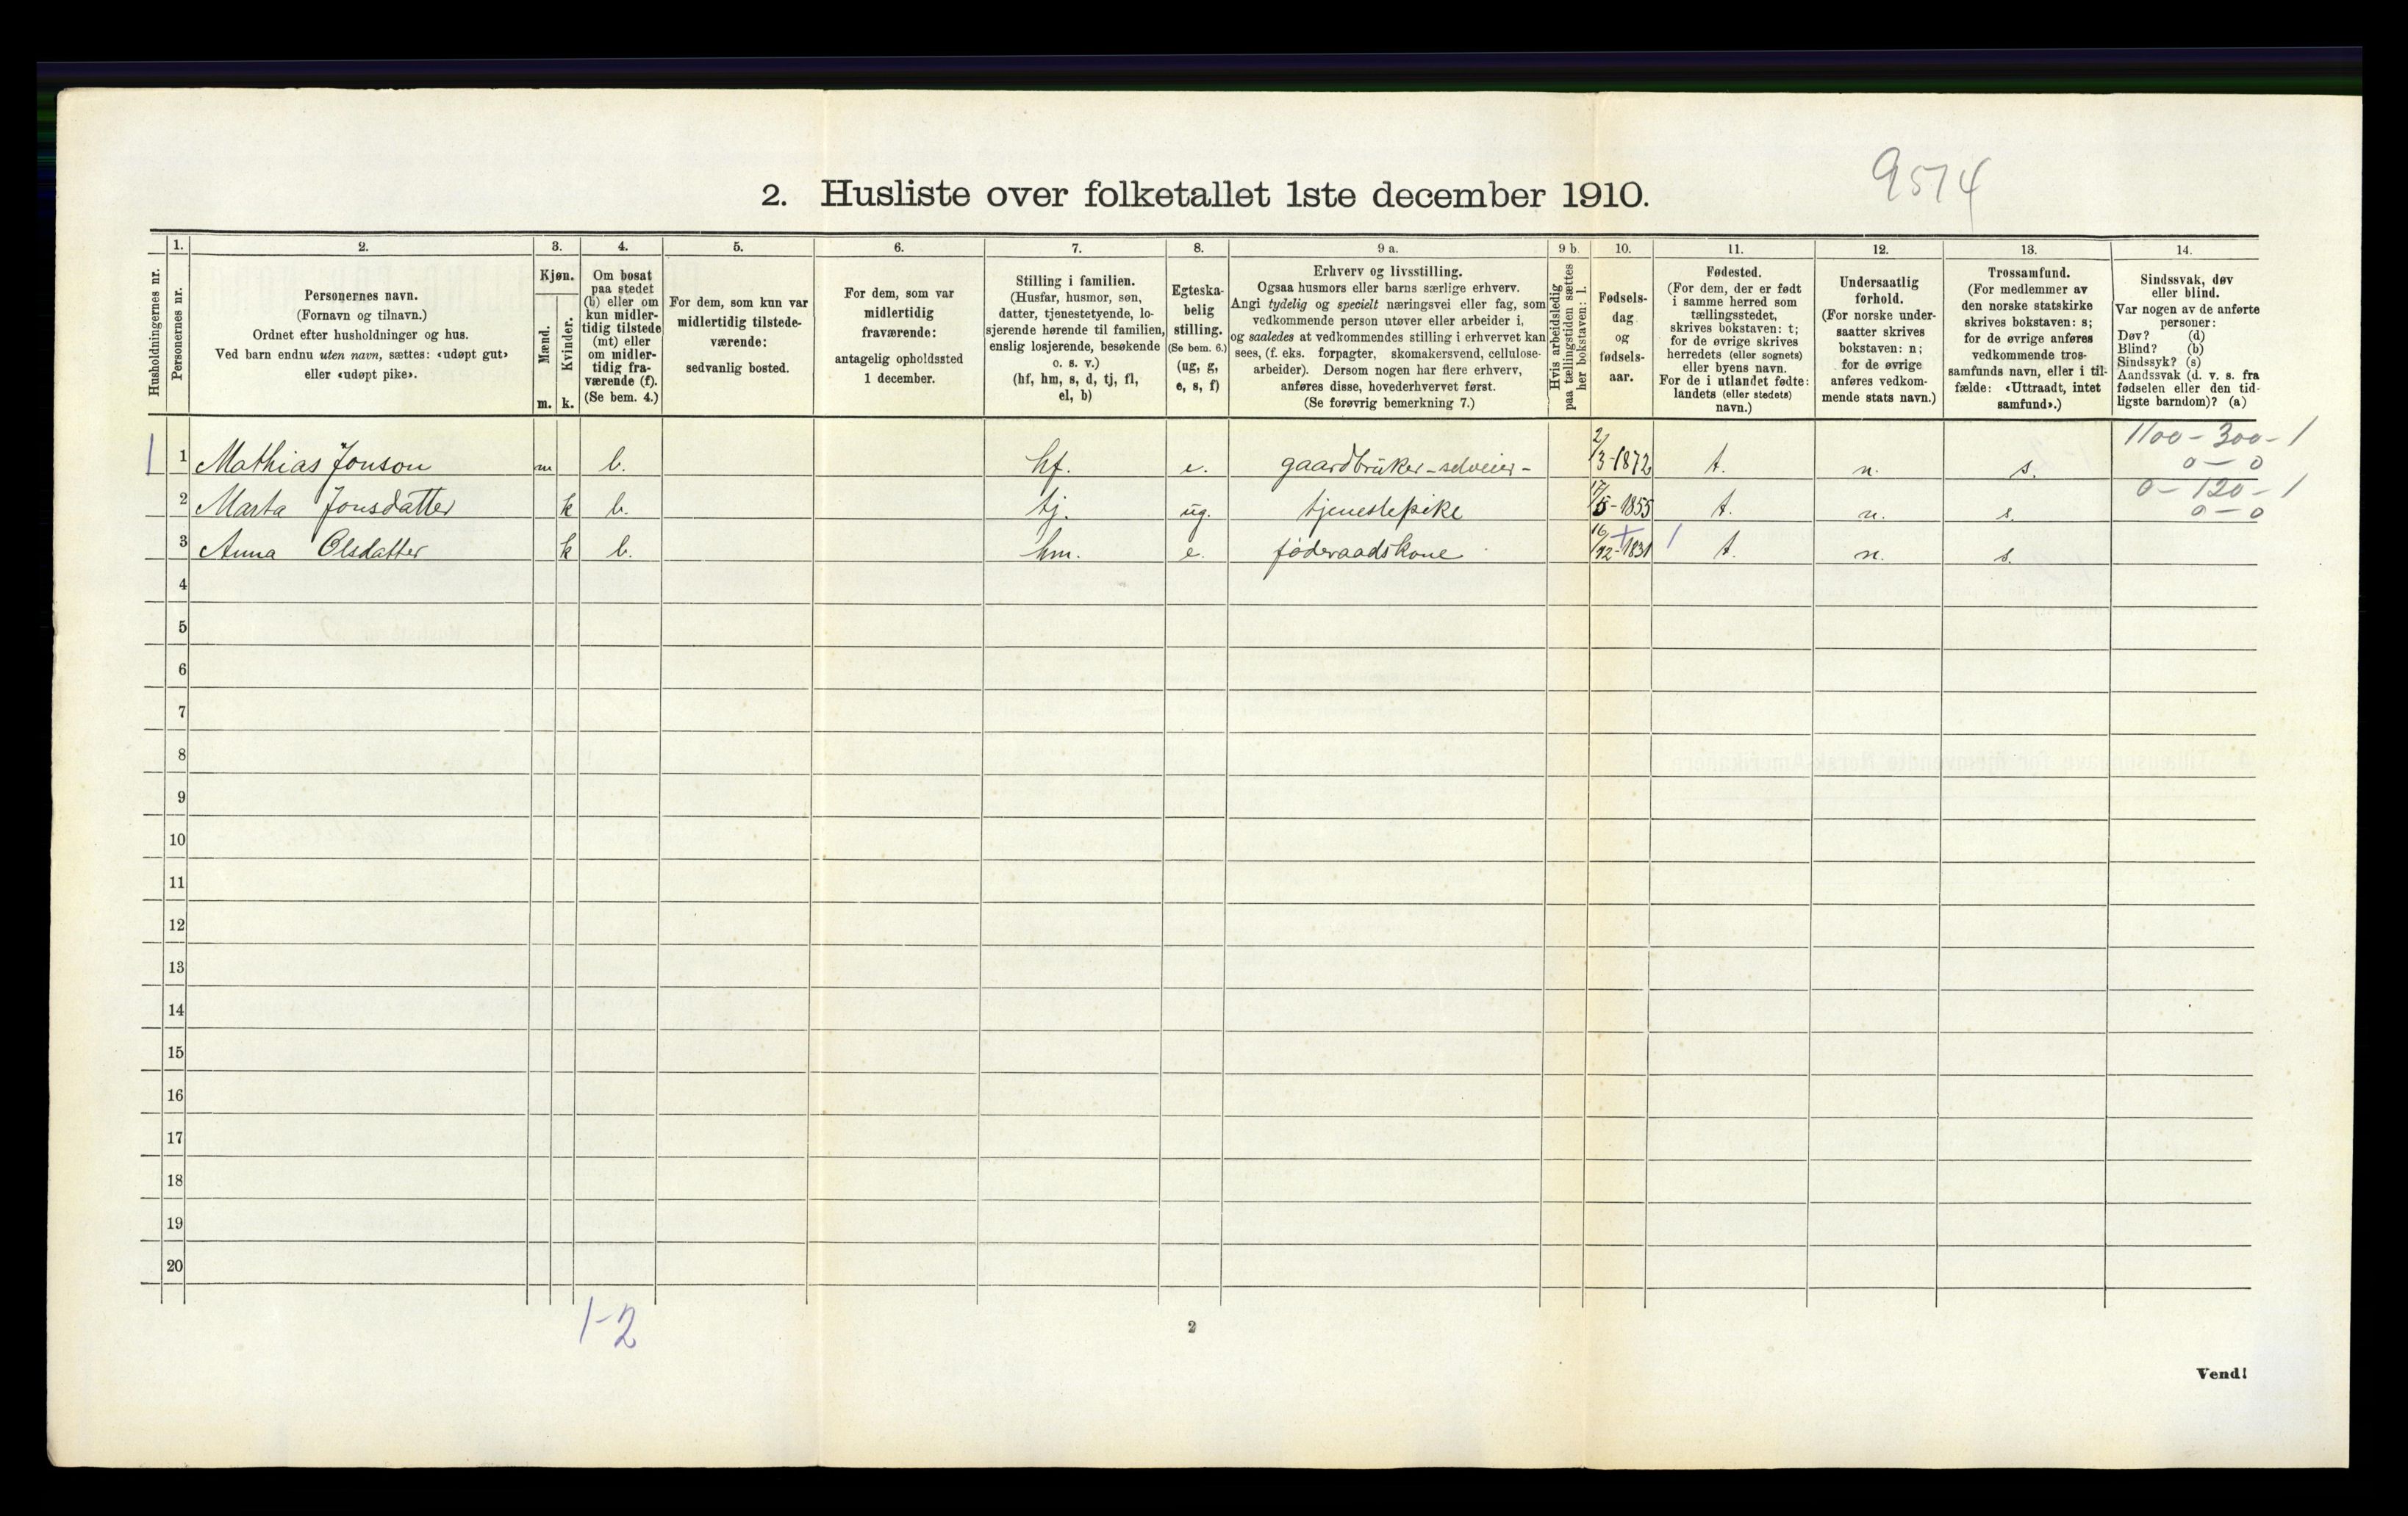 9574
2. Husliste over folketallet 1ste december 1910.
Husholdningernes nr.
1.
Personernes nr.
2.
Personernes navn.
(Fornavn og tilnavn.)
Ordnet efter husholdninger og hus.
Ved barn endnu uten navn, sættes: «udøpt gut»
eller «udøpt pike».
3.
Kjøn.
Mænd.
Kvinder.
m. k.
4.
Om bosat
paa stedet
(b) eller om
kun midler-
tidig tilstede
(mt) eller
om midler-
tidig fra-
værende (f).
(Se bem. 4.)
5.
For dem, som kun var
midlertidig tilstede-
værende:
sedvanlig bosted.
6.
For dem, som var
midlertidig
fraværende:
antagelig opholdssted
1 december.
7.
Stilling i familien.
(Husfar, husmor, søn,
datter, tjenestetyende, lo-
sjerende hørende til familien,
enslig losjerende, besøkende
o. s. v.)
(hf, hm, s, d, tj, fl,
el, b)
8.
Egteska-
belig
stilling.
(Se bem. 6.)
(ug, g,
e, s, f)
9 a.
Erhverv og livsstilling.
Ogsaa husmors eller barns særlige erhverv.
Angi tydelig og specielt næringsvei eller fag, som
vedkommende person utøver eller arbeider i,
og saaledes at vedkommendes stilling i erhvervet kan
sees, (f. eks. forpagter, skomakersvend, cellulose-
arbeider). Dersom nogen har flere erhverv,
anføres disse, hovederhvervet først.
(Se forøvrig bemerkning 7.)
9 b.
Hvis arbeidsledig
paa tællingstiden sættes
her bokstaven: l.
10.
Fødsels-
dag
og
fødsels-
aar.
11.
Fødested.
(For dem, der er født
i samme herred som
tællingsstedet,
skrives bokstaven: t;
for de øvrige skrives
herredets (eller sognets)
eller byens navn.
For de i utlandet fødte:
landets (eller stedets)
navn.)
12.
Undersaatlig
forhold.
(For norske under-
saatter skrives
bokstaven: n;
for de øvrige
anføres vedkom-
mende stats navn.)
13.
Trossamfund.
(For medlemmer av
den norske statskirke
skrives bokstaven: s;
for de øvrige anføres
vedkommende tros-
samfunds navn, eller i til-
fælde: «Uttraadt, intet
samfund».)
14.
Sindssvak, døv
eller blind.
Var nogen av de anførte
personer:
Døv? (d)
Blind? (b)
Sindssyk? (s)
Aandssvak (d. v. s. fra
fødselen eller den tid-
ligste barndom)? (a)
1 1 Mathias Jonson m b. hf. e. gaardbruker - selveier - 2/3-1872 t. n. s. 1100 - 300 - 1
0 - 0
2 Marta Jonsdatter k b. tj. ug. tjenestepike 17/5-1855 t. n. s. 0 - 120 - 1
0 - 0
3 Anna Olsdatter k b. hm. e. føderaadskone 16/12-1831 t. n. s.
4
5
6
7
8
9
10
11
12
13
14
15
16
17
18
19
20
1-2
2
Vend!